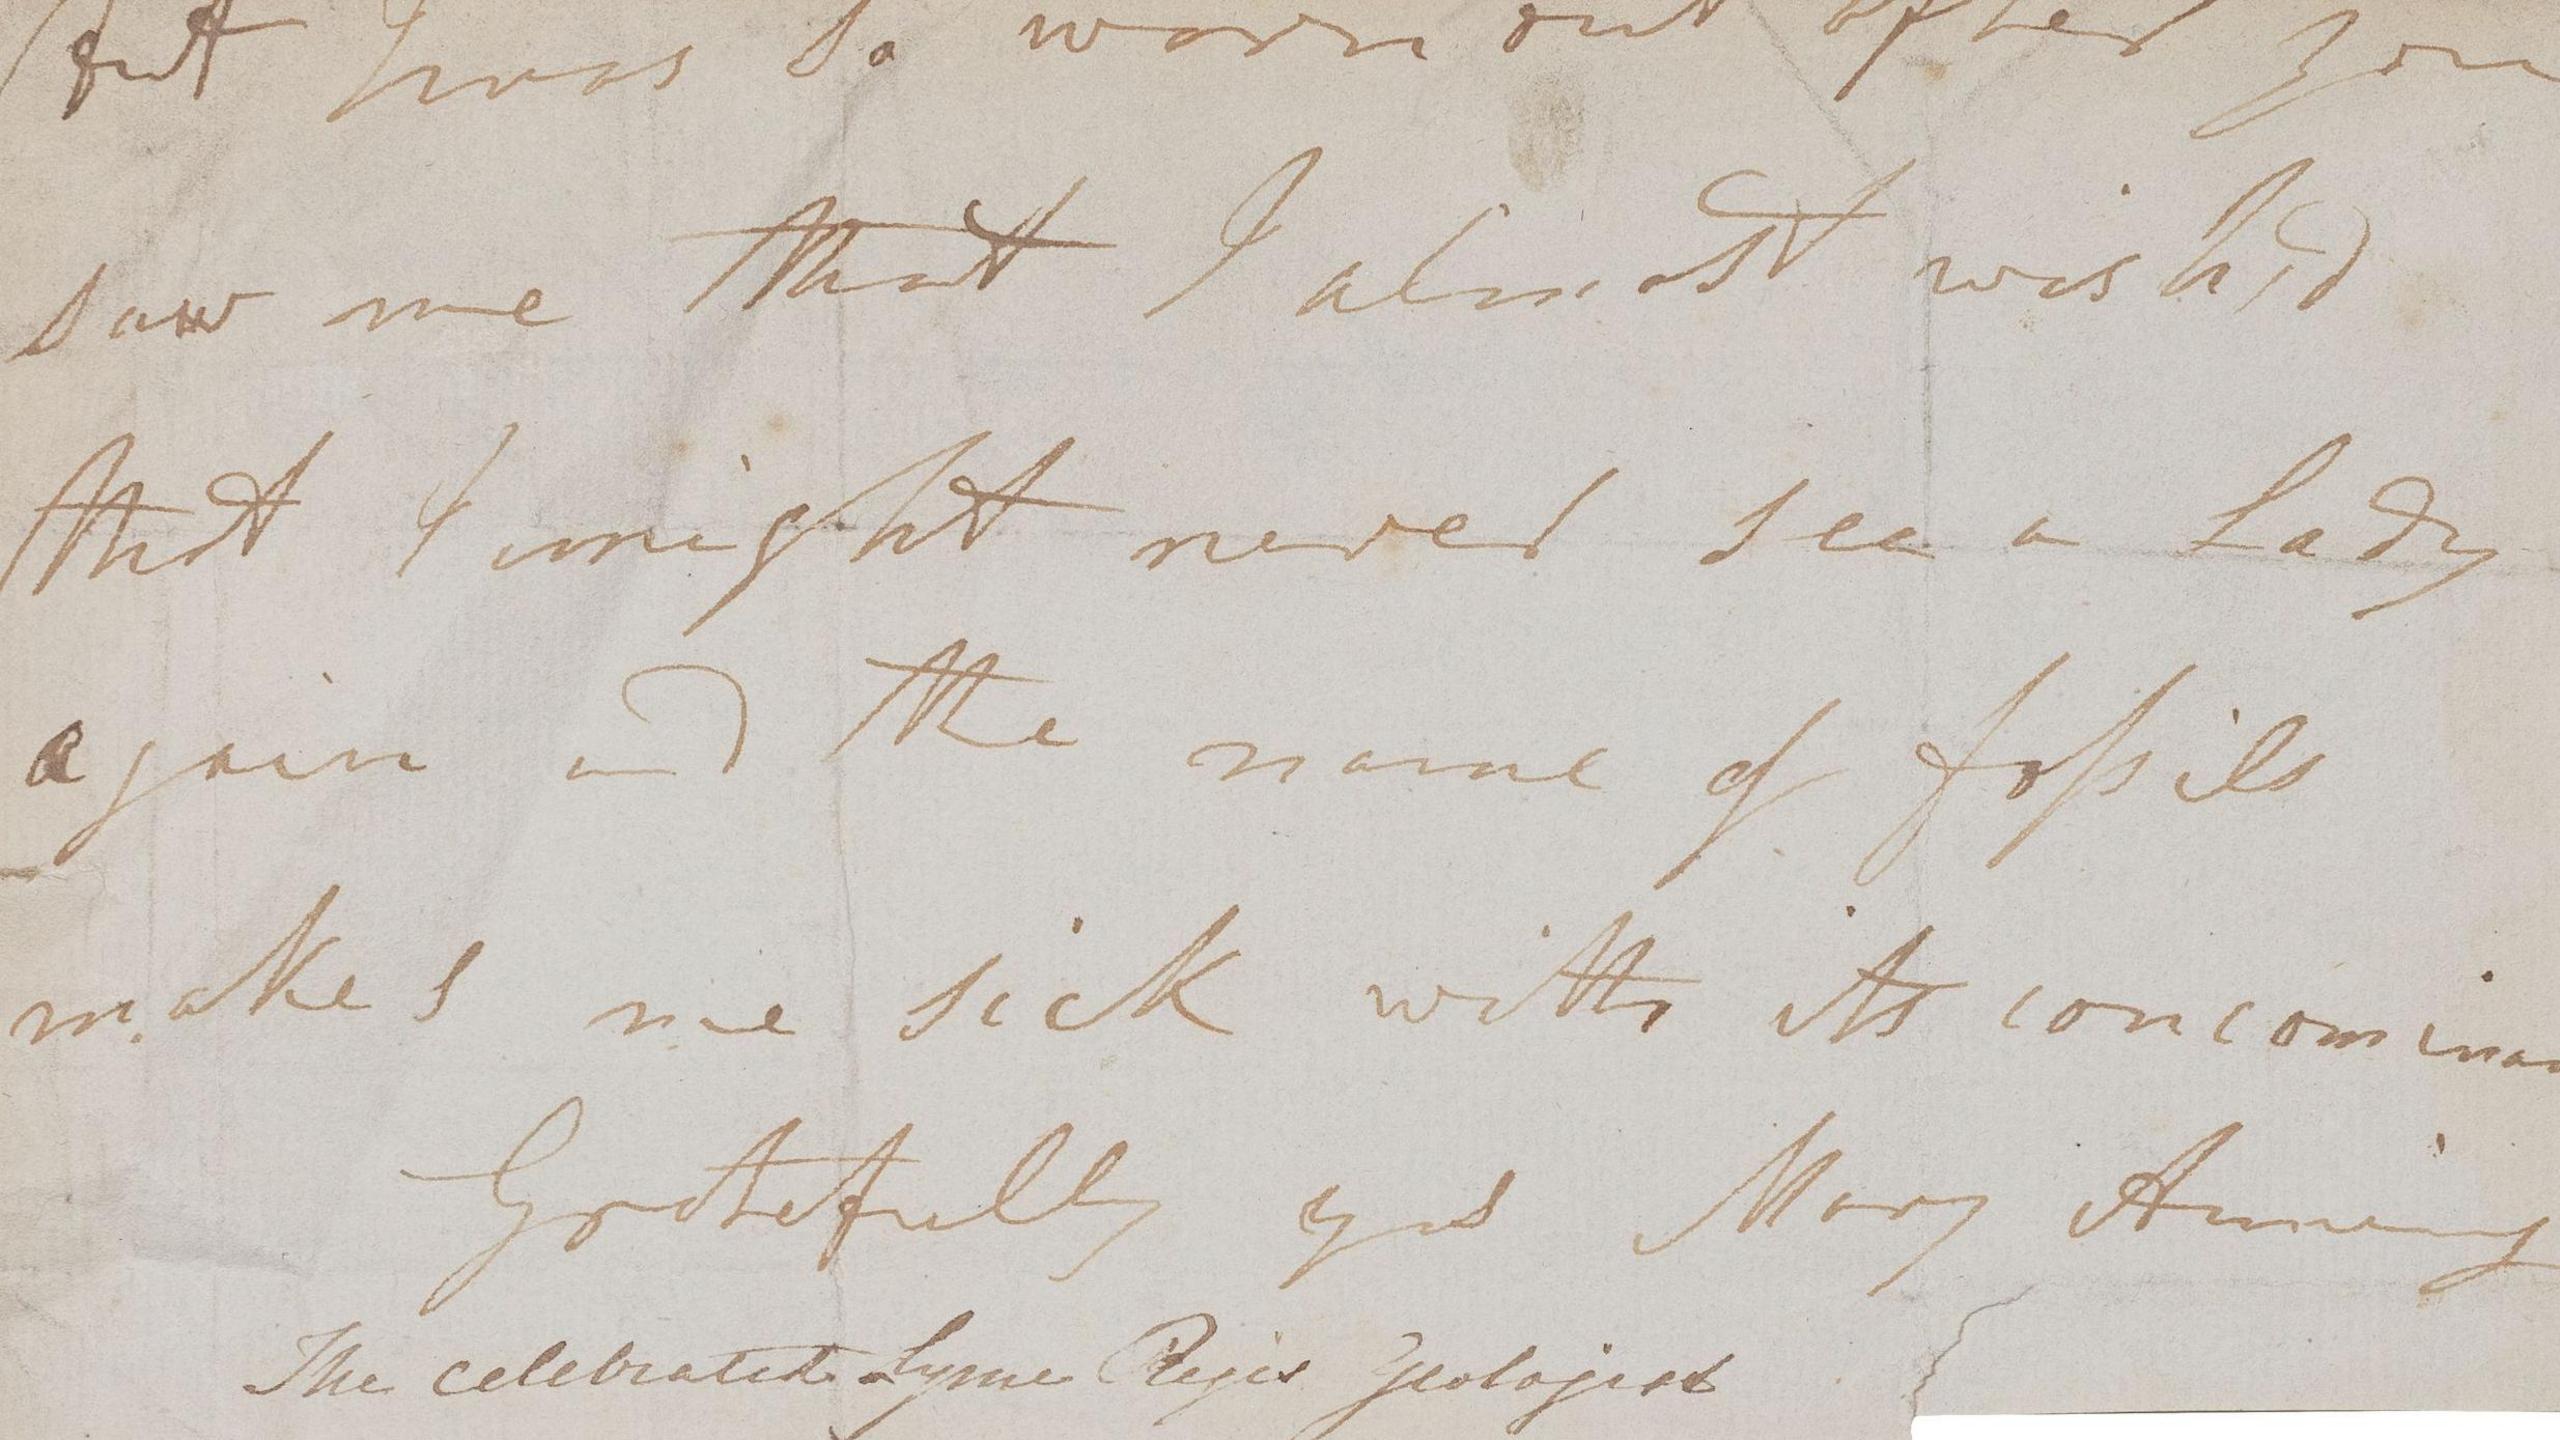 but I was so worn out after you
saw me that I almost wish,d
that I might never see a Lady
again and the name of fossils
makes me sick with its concominan
Gratefully yrs Mary Anning
The celebrated Lyme Regis Geologist